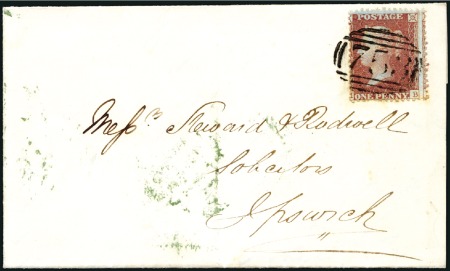 POSTAGE
ONE PENNY B
Messrs Steward & Rodwell
Solicitors
Ipswich